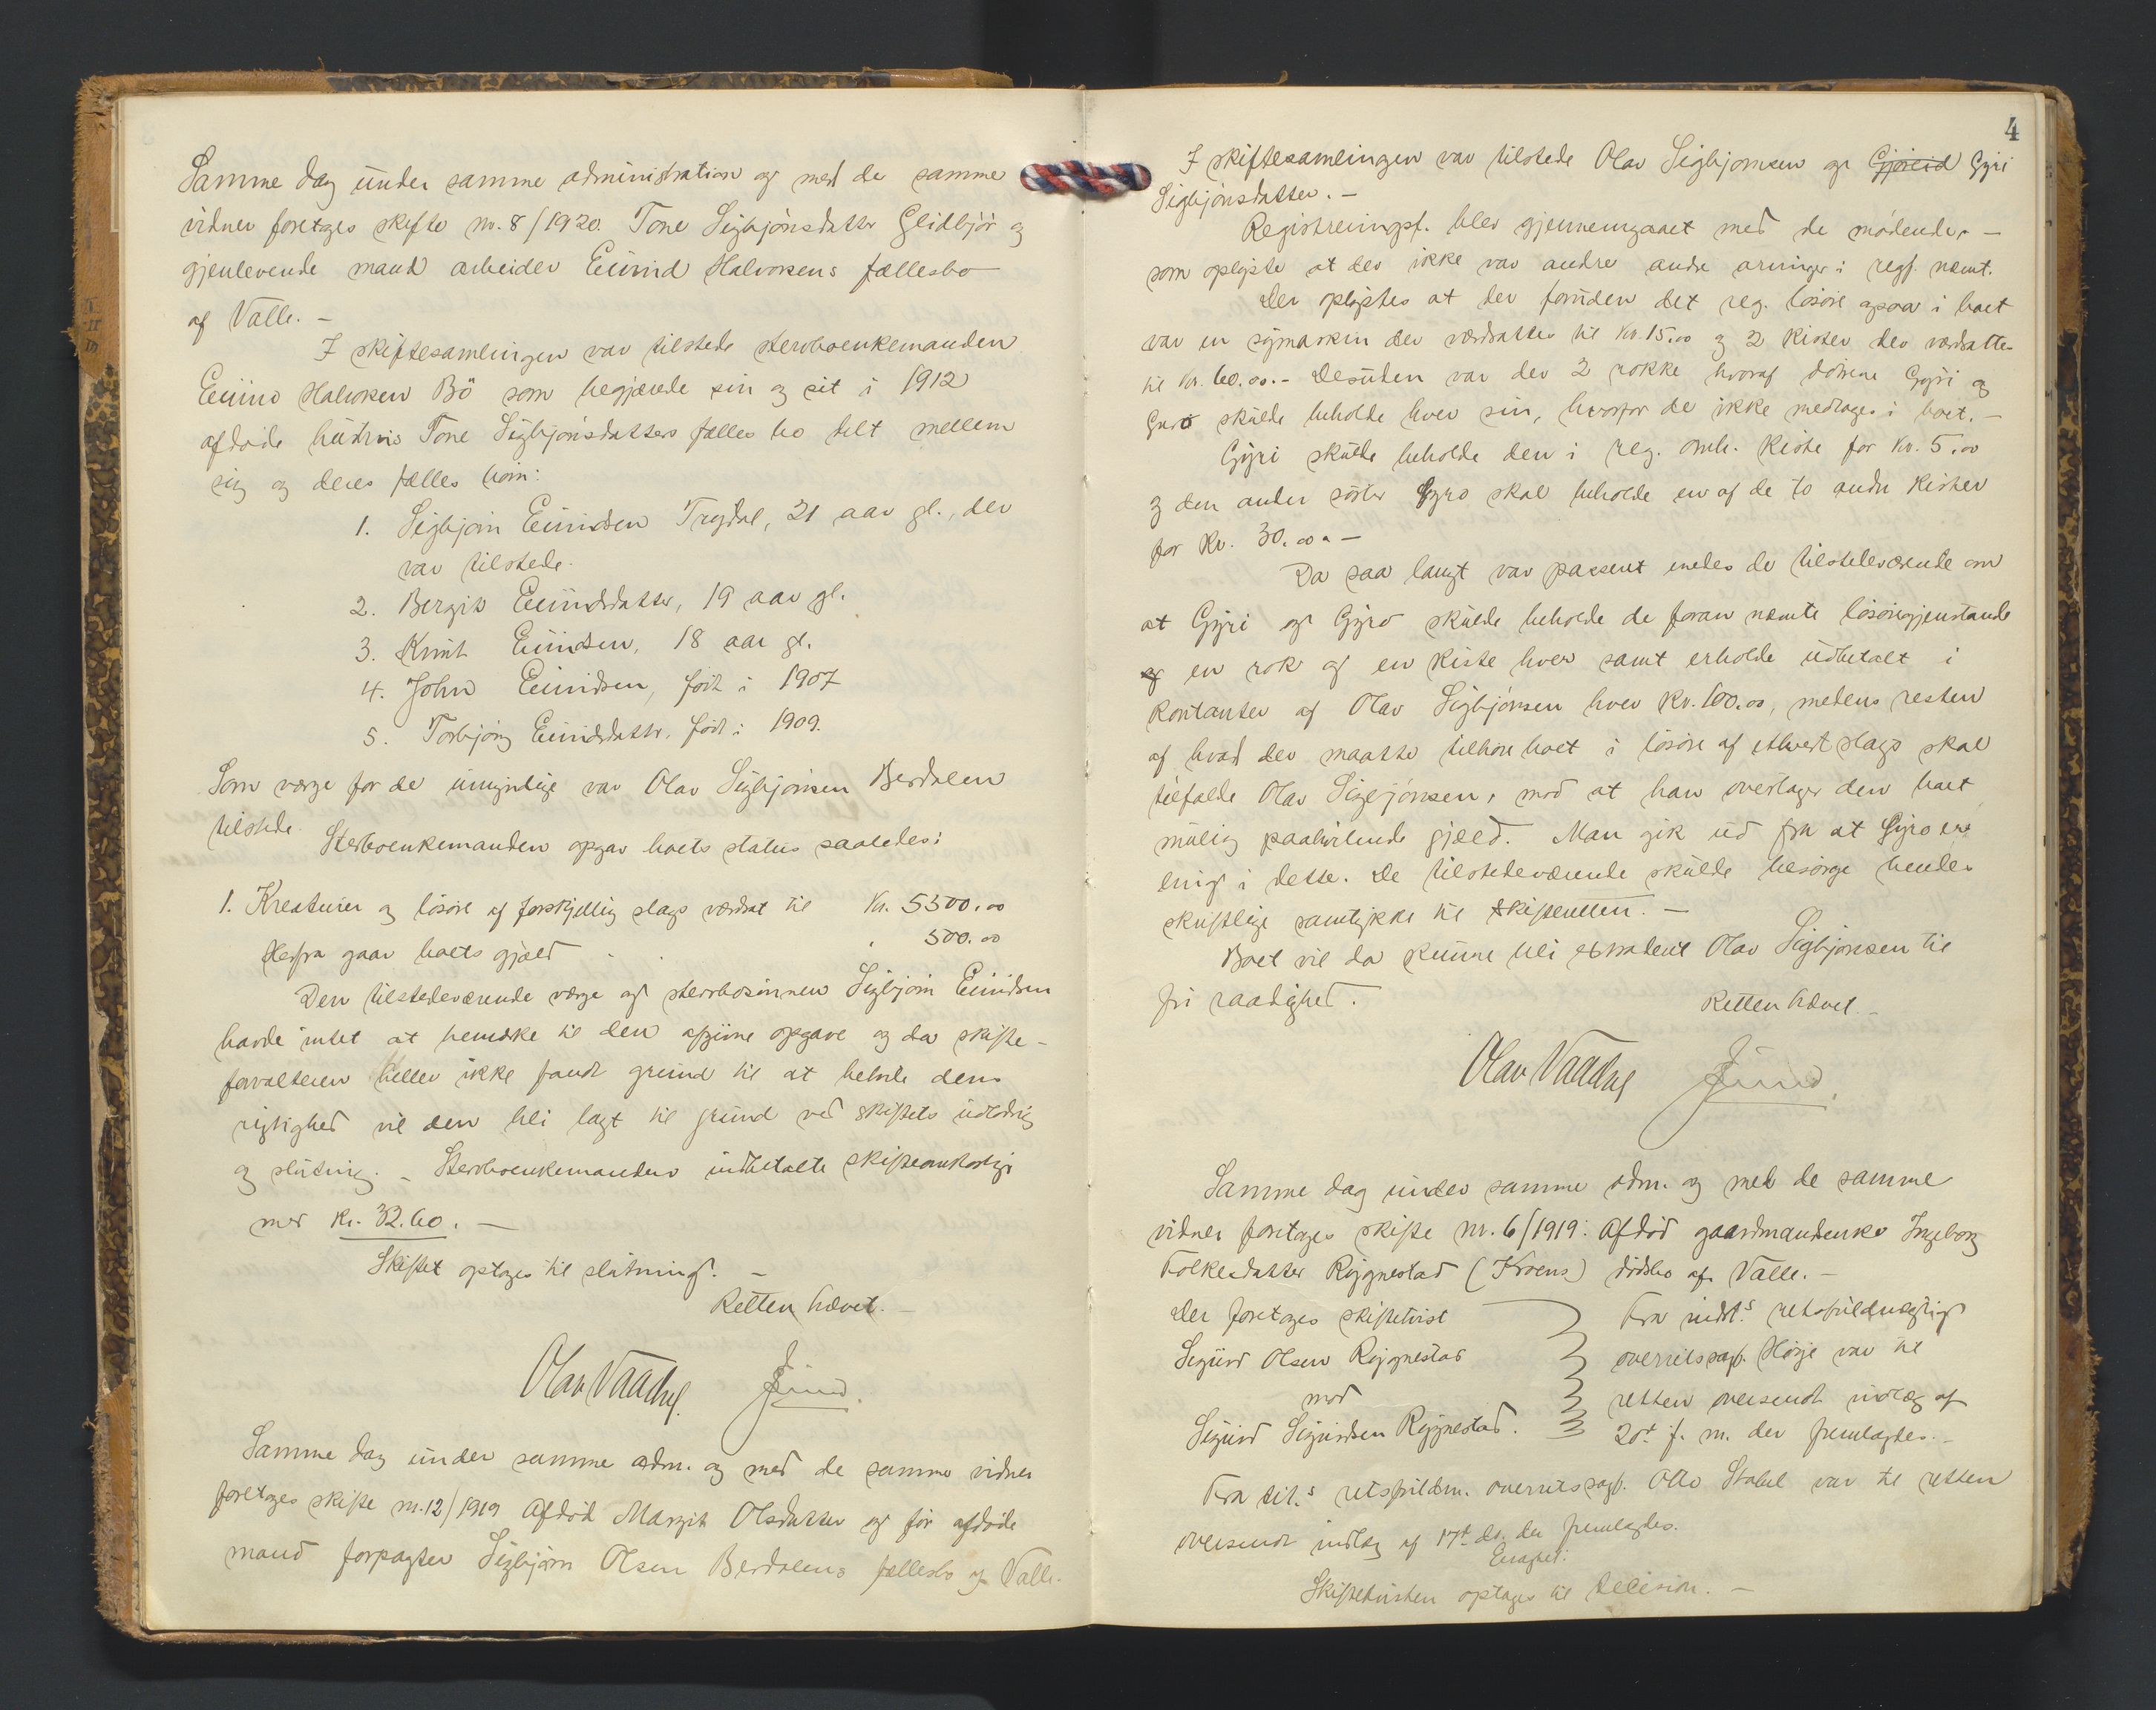 Samme dag under samme administration og med de samme
vidner foretages skifte nr. 8/1920. Tone Sigbjørnsdatter Glidbjør og
gjenlevende mand arbeider Eivind Halvorsens fællesbo
af Valle. -
I skiftesamlingen var tilstede sterboenkemanden
Eivind Halvorsen Bö som begjærede sin og sit i 1912
afdøde hustrus Tone Sigbjørnsdatters fælles bo delt mellem
sig og deres fælles børn:
1. Sigbjørn Eivindsen Trydal, 21 aar gl., der
var tilstede.
2. Bergit Eivindsdatter, 19 aar gl.
3. Knut Eivindsen, 18 aar gl.
4. John Eivindsen, født i 1907
5. Torbjørg Eivindsdatter, født i 1909.
Som værge for de umyndige var Olav Sigbjørnsen Berdalen
tilstede.
Sterboenkemanden opgav boets status saaledes:
1. Kreaturer og løsøre af forskjellig slags værdsat til Kr. 5300.00
Herfra gaar boets gjæld . . " 500.00
Den tilstedeværende værge og sterbosønnen Sigbjørn Eivindsen
havde intet at bemerke til den afgivne opgave og da skifte-
forvalteren heller ikke fandt grund til at betvile dens
rigtighed vil den bli lagt til grund ved skiftets udlodning
og slutning. - Sterboenkemanden indbetalte skifteomkostninger
med kr. 32.60. -
Skiftet optages til slutning. -
Retten hævet. -
Olav Vaadne Sund.
Samme dag under samme adm. og med de samme vidner
foretages skifte nr. 12/1919 Afdød Margit Olsdatter og før afdøde
mand forpagter Sigbjørn Olsen Berdalens fællesbo af Valle.
4
I skiftesamlingen var tilstede Olav Sigbjørnsen og Gyri
Sigbjørnsdatter. -
Registreringsf. blev gjennemgaaet med de mødende, -
som oplyste at der ikke var andre andre arvinger i regf. nævnt.
Der oplystes at der foruden det reg. løsøre ogsaa i boet
var en symaskin der værdsattes til kr. 15.00 og 2 kister der værdsattes
til kr. 60.00. - Desuden var der 2 rokke hvoraf døtrene Gyri og
Guro skulde beholde hver sin, hvorfor de ikke medtages i boet. -
Gyri skulde beholde den i reg. omh. kiste for kr. 5.00
og den anden søster Gyro skal beholde en af de to andre kister
for kr. 30.00. -
Da saa langt var passert enedes de tilstedeværende om
at Gyri og Gyro skulde beholde de foran nævnte løsøregjenstande
og en rok og en kiste hver samt erholde udbetalt i
kontanter af Olav Sigbjørnsen hver kr. 100.00, medens resten
af hvad der maatte tilhøre boet i løsøre af ethvert slags skal
tilfalde Olav Sigbjørnsen, mod at han overtager den boet
mulig paahvilende gjæld. Man gik ud fra at Gyro er
enig i dette. De tilstedeværende skulde besørge hendes
skriftlige samtykke til skifteretten. -
Boet vil da kunne bli extradert Olav Sigbjørnsen til
fri raadighed.
Retten hævet. -
Olav Vaadne Sund.
Samme dag under samme adm. og med de samme
vidner foretages skifte nr. 6/1919: Afdød gaardmandenke Ingeborg
Folkesdatter Rygnestad (Kroens) dødsbo af Valle. -
Der foretages skiftetvist
Sigurd Olsen Rygnestad
mod
Sigurd Sigurdsen Rygnestad.
Fra indst.s retsfuldmægtig
overretssagf. Hørje var til
retten oversendt indlæg af
20d f. m. der fremlagdes. -
Fra cit.s retsfuldm. overretssagf. Otto Stabel var til retten
oversendt indlæg af 17d ds. der fremlagdes.
Eragtet:
Skiftetvisten optages til decision. -